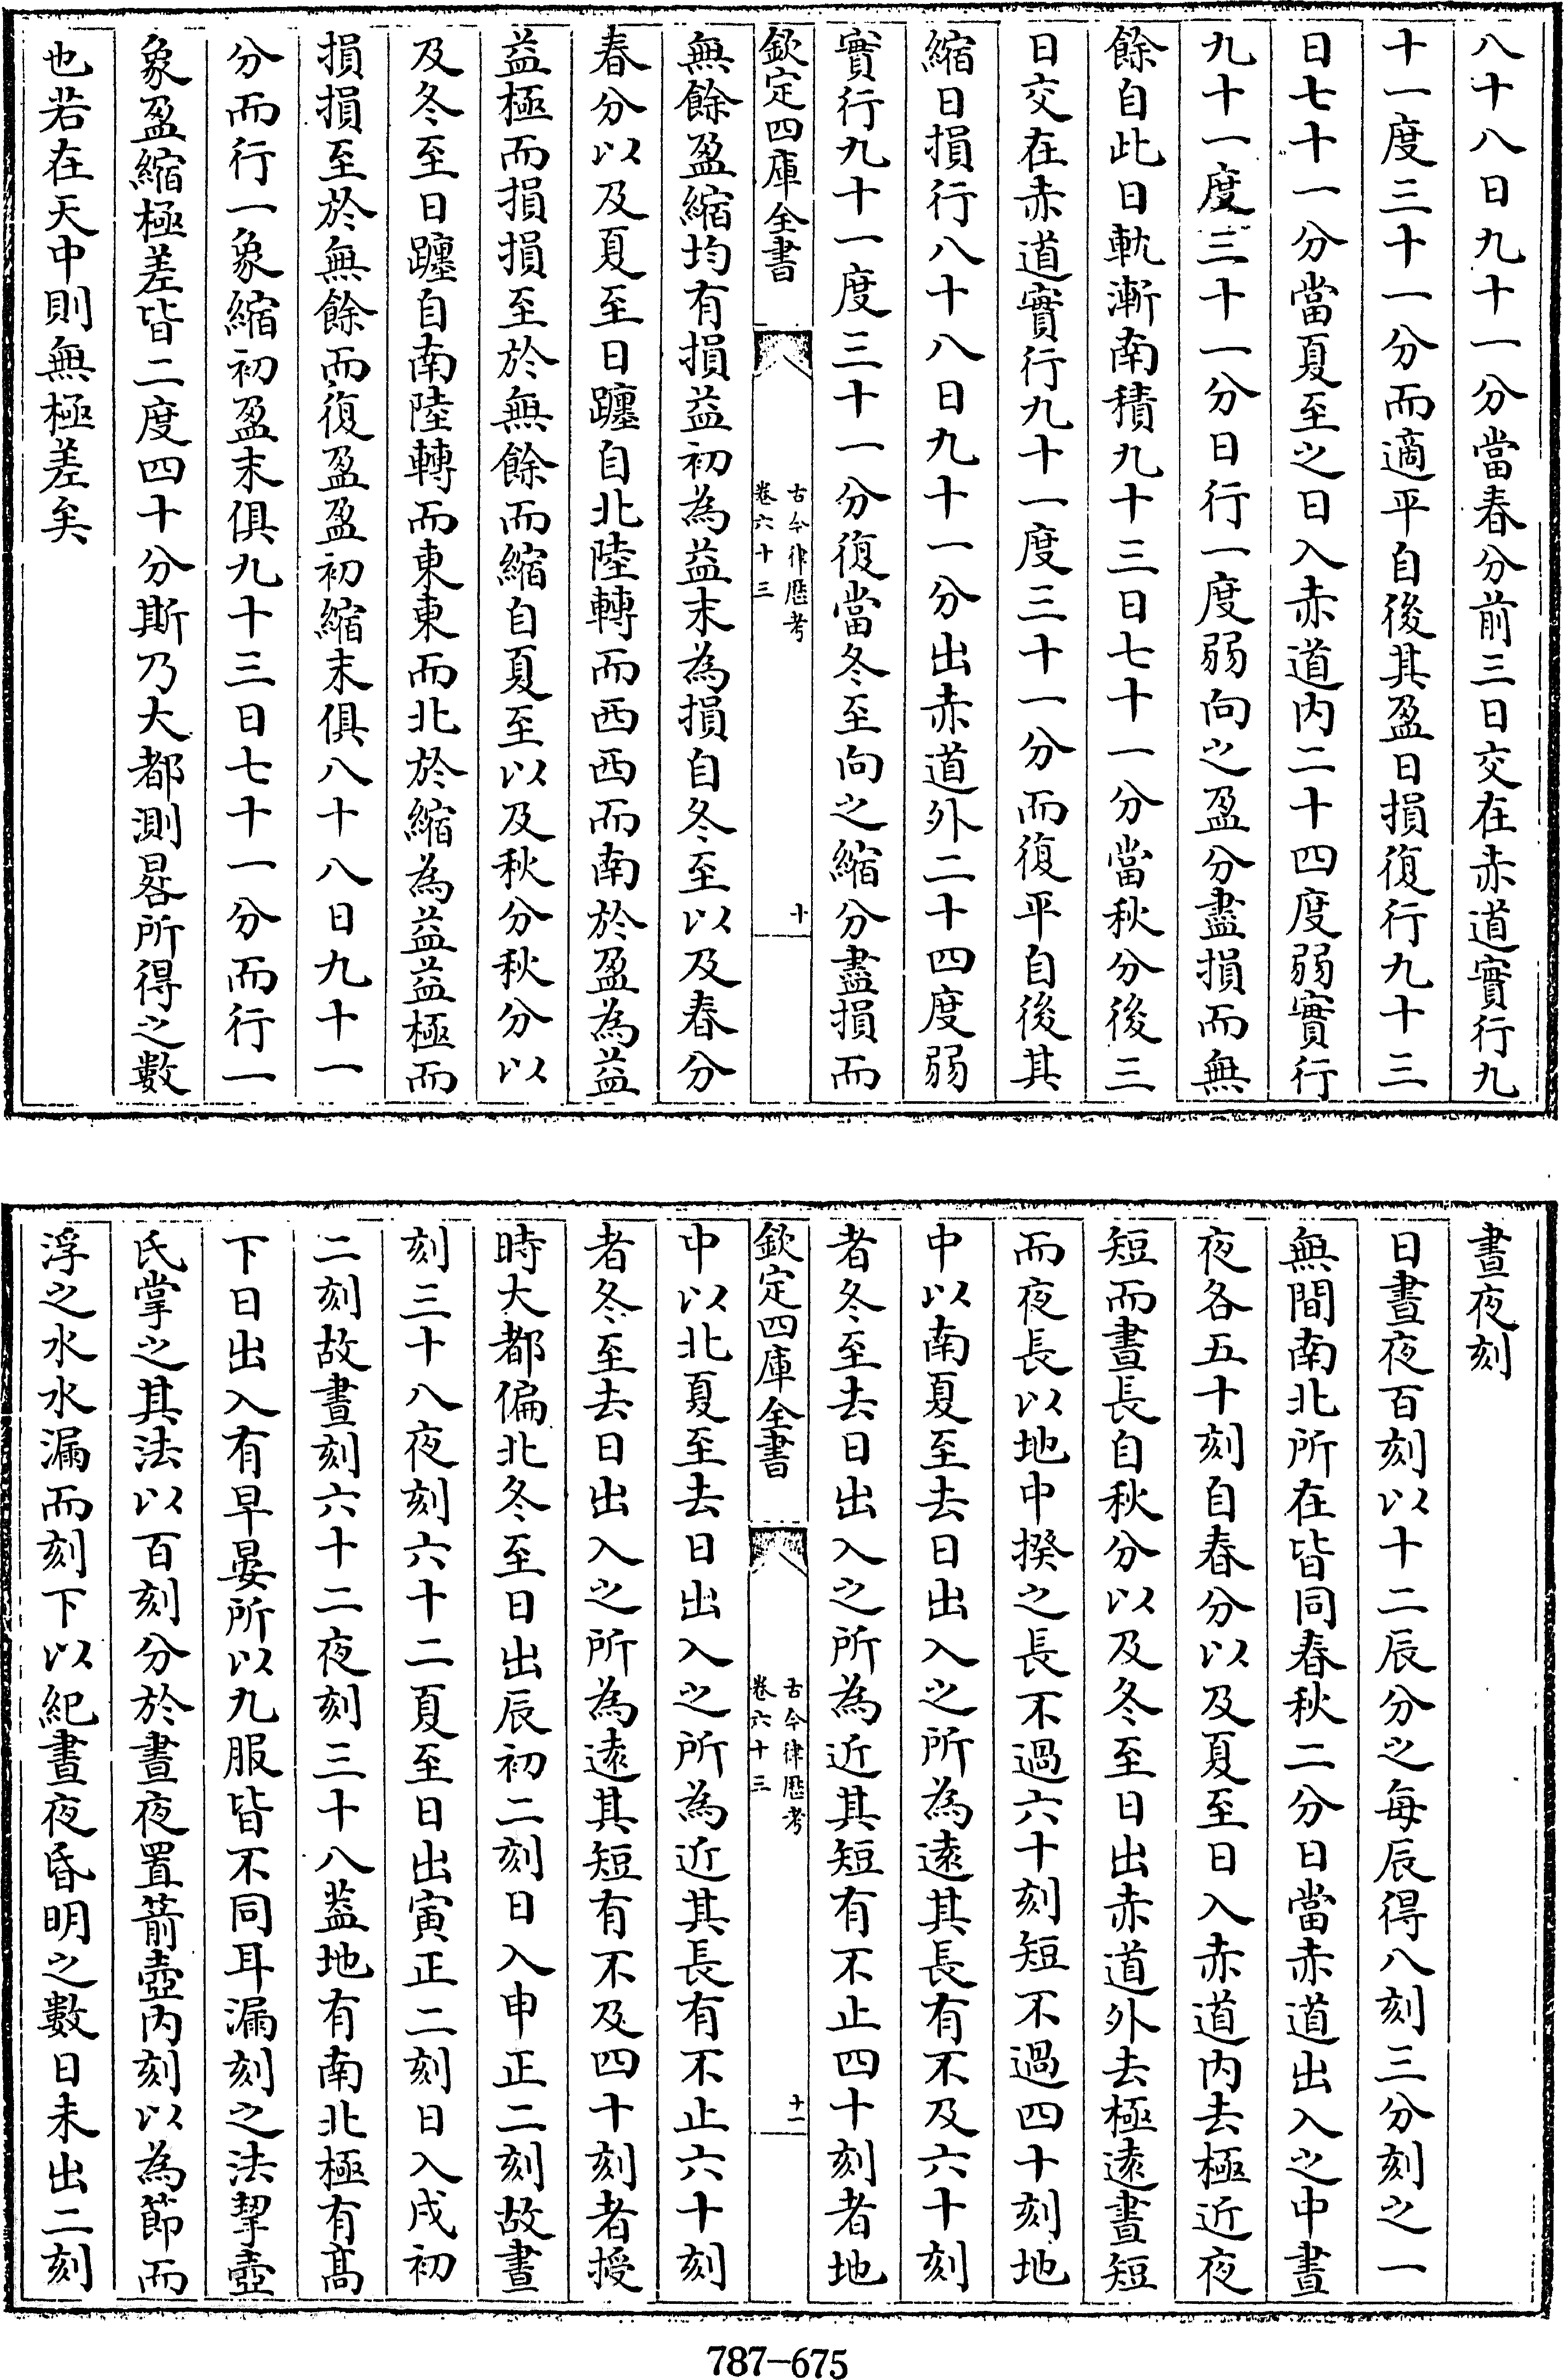 八十八日九十一分當春分前三日交在赤道實行九
十一度三十一分而適平自後其盈日損復行九十三
日七十一分當夏至之日入赤道内二十四度弱實行
九十一度三十一分日行一度弱向之盈分盡損而無
餘自此日軌漸南積九十三日七十一分當秋分後三
日交在赤道實行九十一度三十一分而復平自後其
縮日損行八十八日九十一分出赤道外二十四度弱
實行九十一度三十一分復當冬至向之縮分盡損而
欽定四庫全書
古今律厯考
卷六十三
十
無餘盈縮均有損益初為益末為損自冬至以及春分
春分以及夏至日躔自北陸轉而西西而南於盈為益
益極而損損至於無餘而縮自夏至以及秋分秋分以
及冬至日躔自南陸轉而東東而北於縮為益益極而
損損至於無餘而復盈盈初縮末俱八十八日九十一
分而行一象縮初盈末俱九十三日七十一分而行一
象盈縮極差皆二度四十分斯乃大都測晷所得之數
也若在天中則無極差矣
晝夜刻
日晝夜百刻以十二辰分之每辰得八刻三分刻之一
無間南北所在皆同春秋二分日當赤道出入之中晝
夜各五十刻自春分以及夏至日入赤道内去極近夜
短而晝長自秋分以及冬至日出赤道外去極遠晝短
而夜長以地中揆之長不過六十刻短不過四十刻地
中以南夏至去日出入之所為遠其長有不及六十刻
者冬至去日出入之所為近其短有不止四十刻者地
欽定四庫全書
古今律厯考
卷六十三
十一
中以北夏至去日出入之所為近其長有不止六十刻
者冬至去日出入之所為遠其短有不及四十刻者授
時大都偏北冬至日出辰初二刻日入申正二刻故晝
刻三十八夜刻六十二夏至日出寅正二刻日入戌初
二刻故晝刻六十二夜刻三十八葢地有南北極有髙
下日出入有早晏所以九服皆不同耳漏刻之法挈壺
氏掌之其法以百刻分於晝夜置箭壺内刻以為節而
浮之水水漏而刻下以紀晝夜昏明之數日未出二刻
787-675